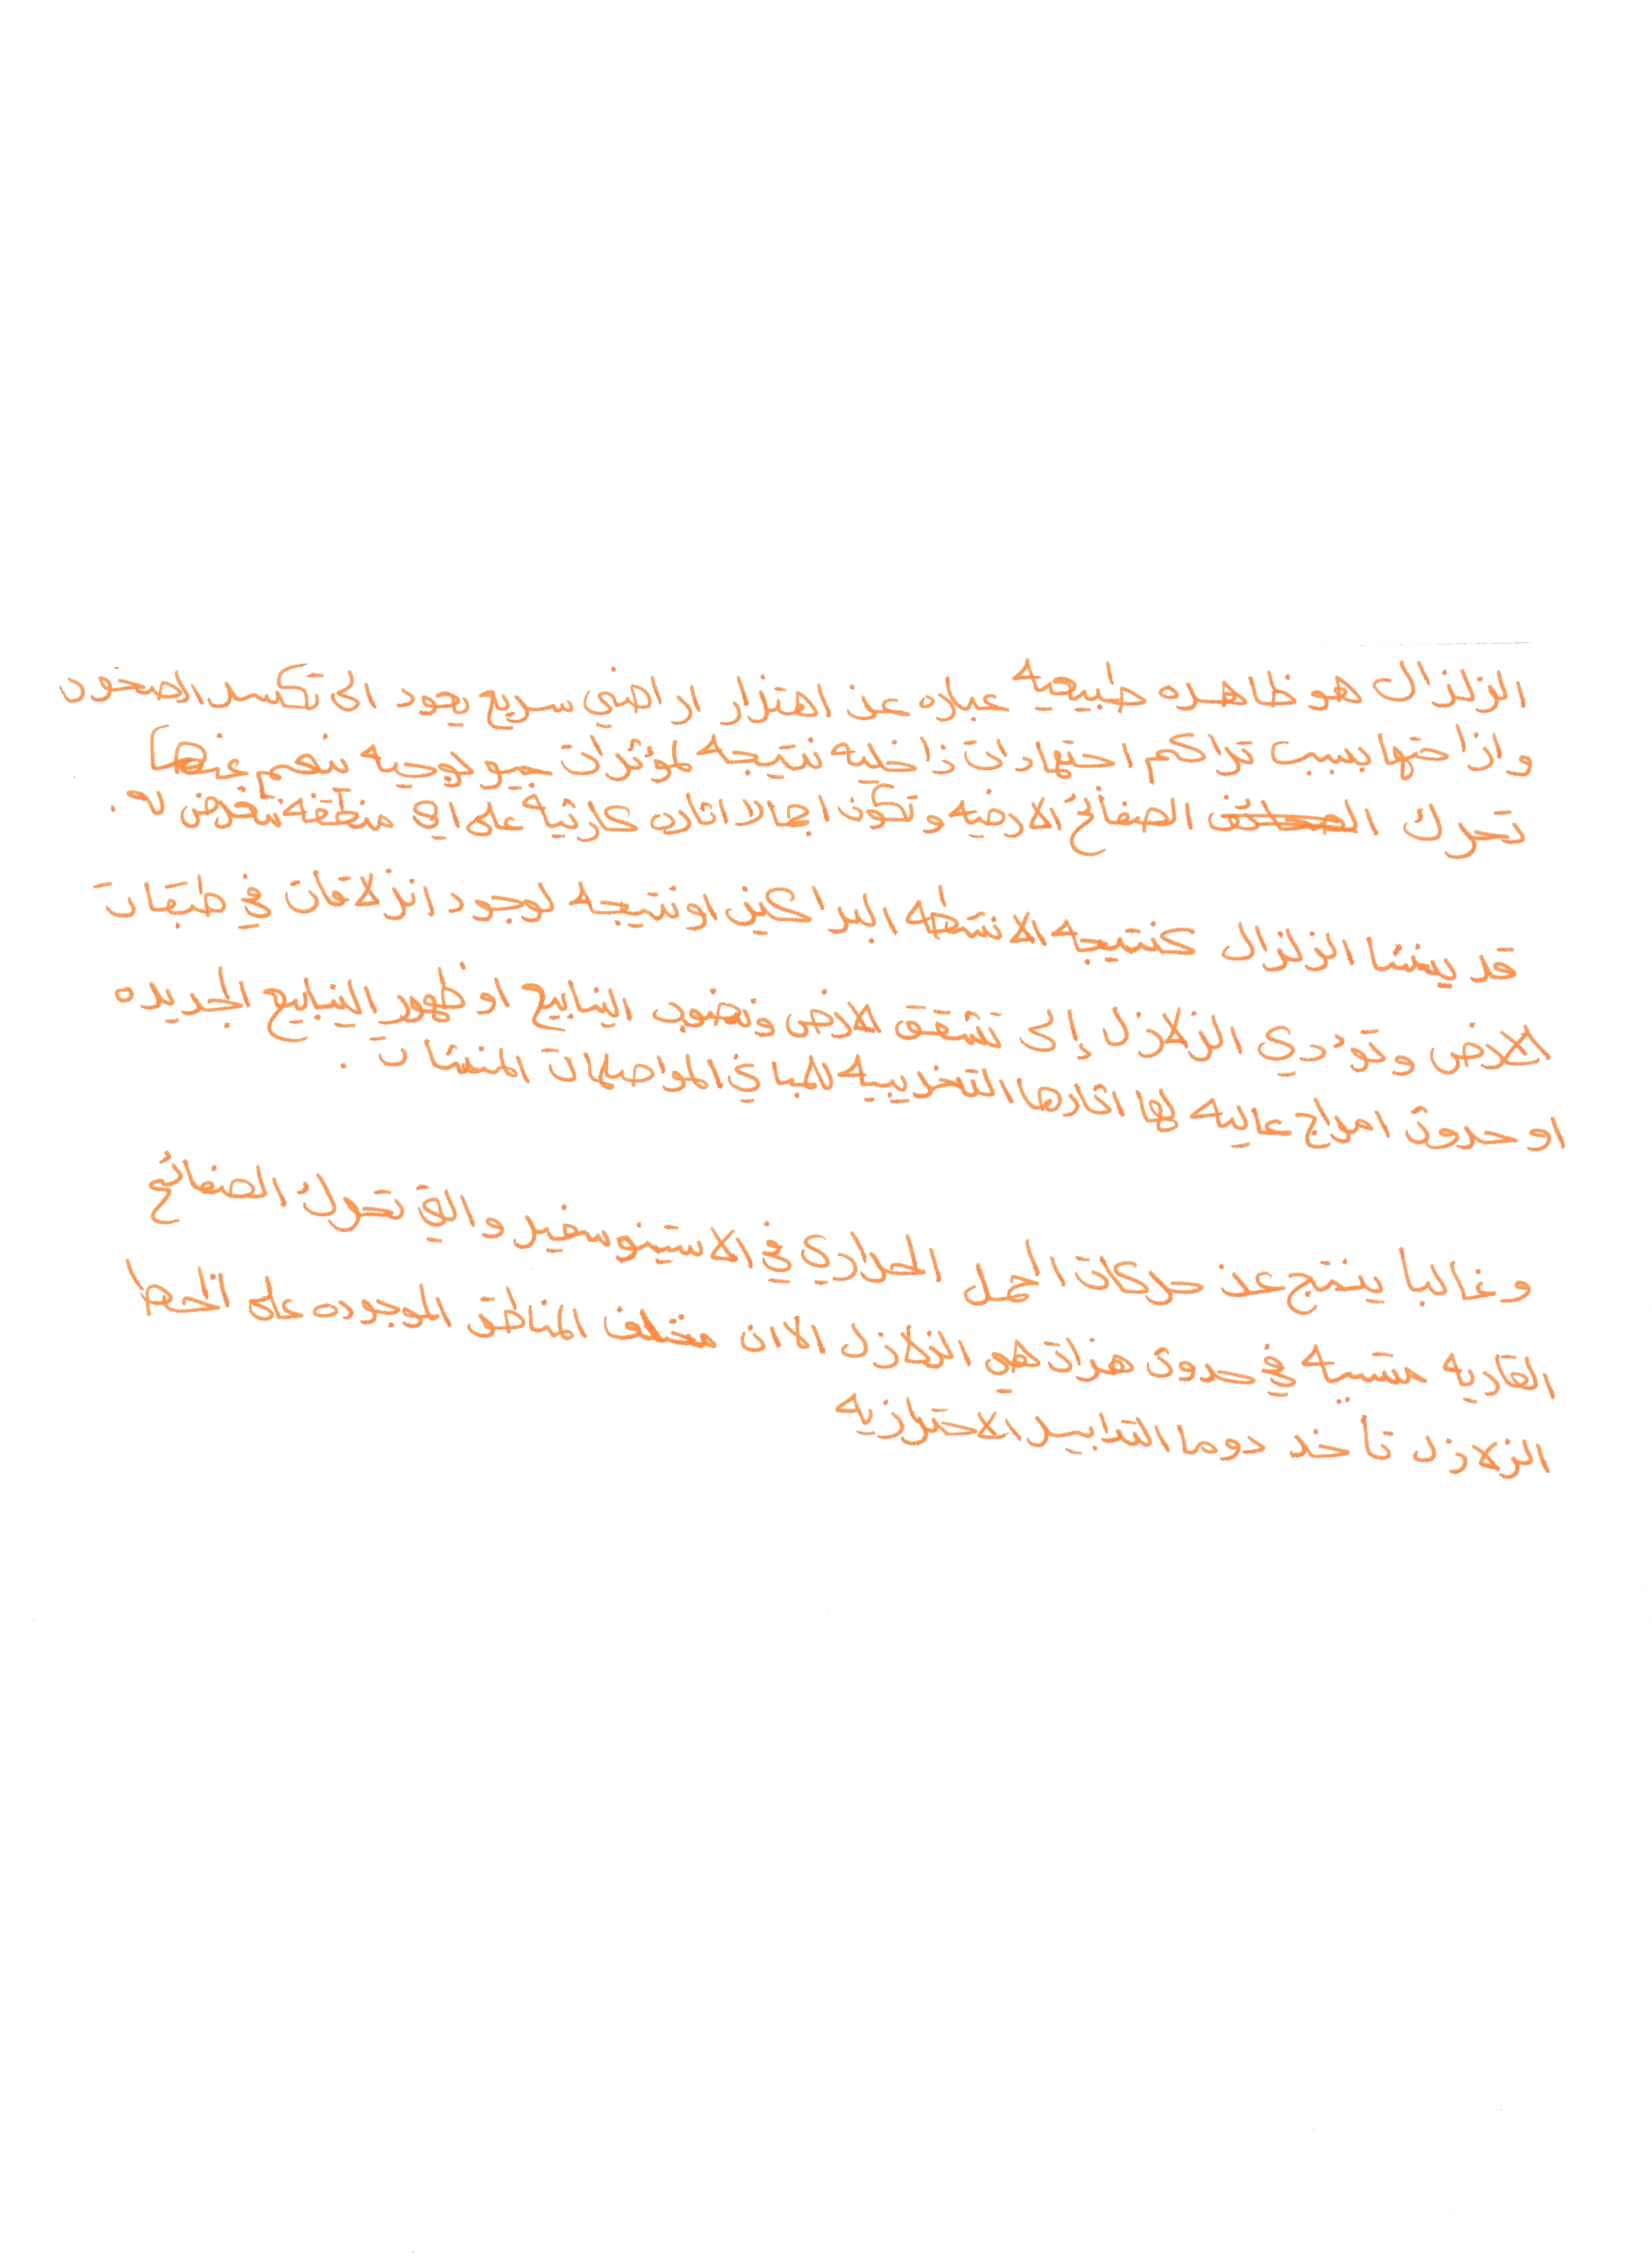 الزلزال هو ظاهره طبيعيه عباره عن اهتزاز اراضي سريع يعود الى تكسر الصخور
وازاحتها بسبب تراكم اجتهادات داخليه نتيجه لموثرات جيولوجيه ينجم عنها
تحرك الصفائح الارضيه وتكون اجمالا اثاره كارثية على اي منطقه تتعرض له .
قد ينشا الزلزال كنتيجه الانشطه البراكين او نتيجه لوجود انزلاقات في طبقات
الارض وتؤدي الزلازل إلى تشقق الارض ونضوب الينابيع او ظهور الينابيع الجديده
او حدوث امواج عاليه لها اثارها التخريبيه للمباني المواصلات المنشات .
وغالبا ينتج عن حركات الحمل الحراري في الاستينوسفير والتي تحرك الصفائح
القاريه متسببه في حدوث هزات هي الزلازل الان مختلف المناطق الموجوده على
الزلازل تأخذ دوما التدابير الاحترازيه